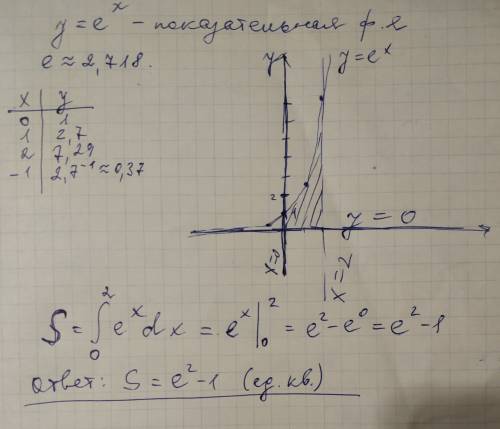 y = eˣ – показательная ф. я
e ≈ 2,718.
x | y
0 | 1
1 | 2,7
2 | 7,29
-1 | 2,7⁻¹ ≈ 0,37
y
y = eˣ
2
y = 0
x=0
x=2
S = ∫₀² eˣ dx = eˣ |₀² = e² – e⁰ = e² – 1
Ответ: S = e² – 1 (ед. кв.)